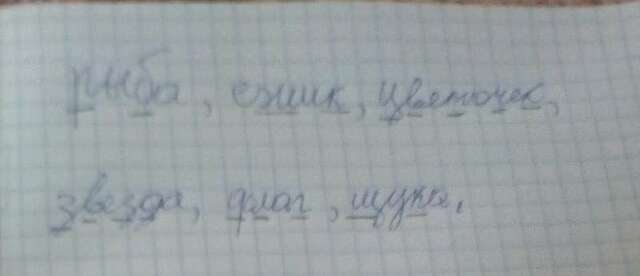 рыба, ёжик, цветочек,
звезда, флаг, щука.